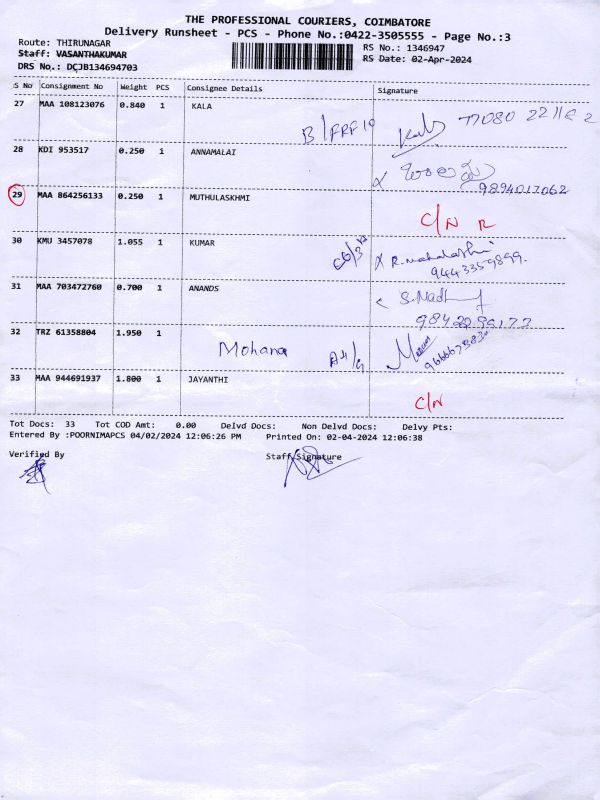 THE PROFESSIONAL COURIERS, COIMBATORE
Delivery Runsheet - PCS - Phone No.:0422-3505555 - Page No.:3
Route: THIRUNAGAR
RS No.: 1346947
Staff: VASANTHAKUMAR
RS Date: 02-Apr-2024
DRS No.: DCJB134694703
S No Consignment No Weight PCS Consignee Details Signature
27 MAA 108123076 0.840 1 KALA
28 KDI 953517 0.250 1 ANNAMALAI
9894017062
29 MAA 864256133 0.250 1 MUTHULASKHMI
C/N R
30 KMU 3457078 1.055 1 KUMAR
R. mahalakshmi
9443359899.
31 MAA 703472760 0.700 1 ANANDS
32 TRZ 61358804 1.950 1
Mohana
33 MAA 944691937 1.800 1 JAYANTHI
C/N
Tot Docs: 33 Tot COD Amt: 0.00 Delvd Docs: Non Delvd Docs: Delvy Pts:
Entered By :POORNIMAPCS 04/02/2024 12:06:26 PM Printed On: 02-04-2024 12:06:38
Verified By Staff Signature